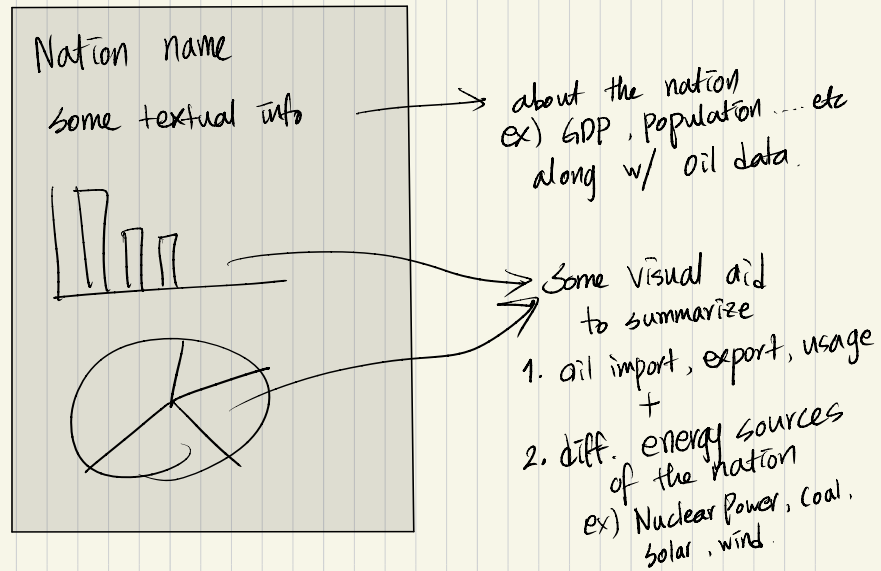 Nation name
some textual info
about the nation
ex) GDP, population .... etc
along w/ oil data.
Some visual aid
to summarize
1. oil import, export, usage
+
2. diff. energy sources
of the nation
ex) Nuclear Power, Coal,
Solar, wind.